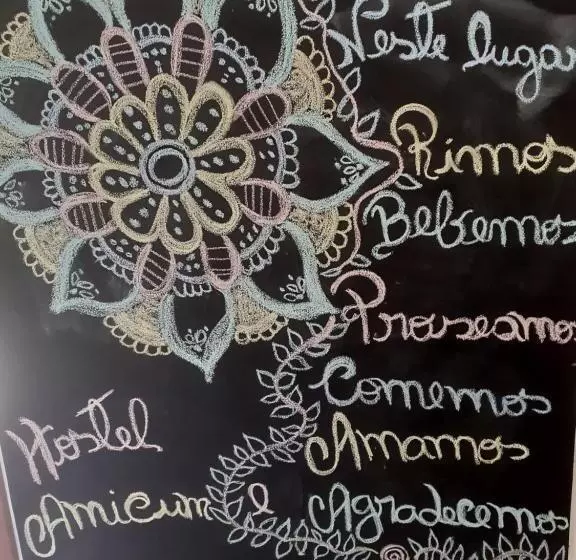 Neste lugar
Rimos
Bebemos
Proseamos
Comemos
Amamos
Agradecemos
Hostel
Amicum